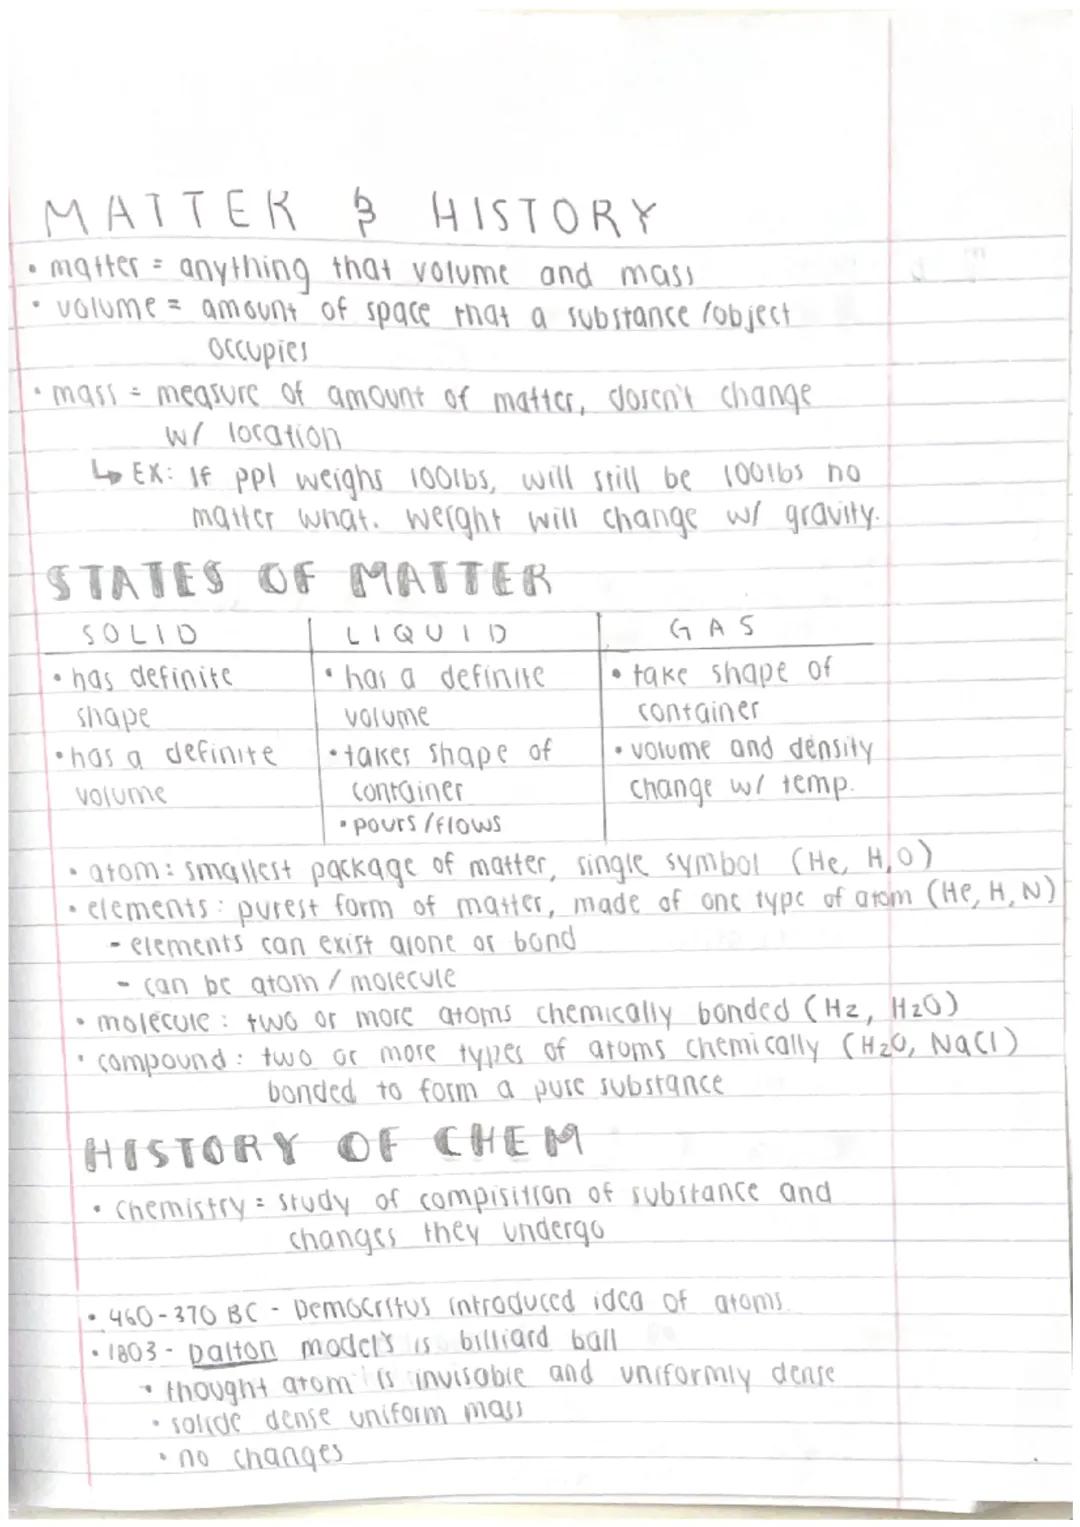 MATTER & HISTORY
• matter = anything that volume and mass
• volume = amount of space that a substance/object
occupies
• mass = measure of amount of matter, dosen't change
w/ location
↳ EX: If ppl weighs 100lbs, will still be 100lbs no
matter what. weight will change w/ gravity.
STATES OF MATTER
SOLID LIQUID GAS
• has definite • has a definite • take shape of
shape volume container
• has a definite • takes shape of • volume and density
volume container change w/ temp.
• pours/flows
• atom: smallest package of matter, single symbol (He, H, O)
• elements: purest form of matter, made of one type of atom (He, H, N)
- elements can exist alone or bond
- can be atom/molecule
• molecule: two or more atoms chemically bonded (H2, H2O)
• compound: two or more types of atoms chemically (H2O, NaCl)
bonded to form a pure substance
HISTORY OF CHEM
• chemistry = study of compisition of substance and
changes they undergo
• 460-370 BC - Democritus introduced idea of atoms.
• 1803 - Dalton model's is billiard ball
• thought atom is invisable and uniformly dense
• solide dense uniform mass
• no changes